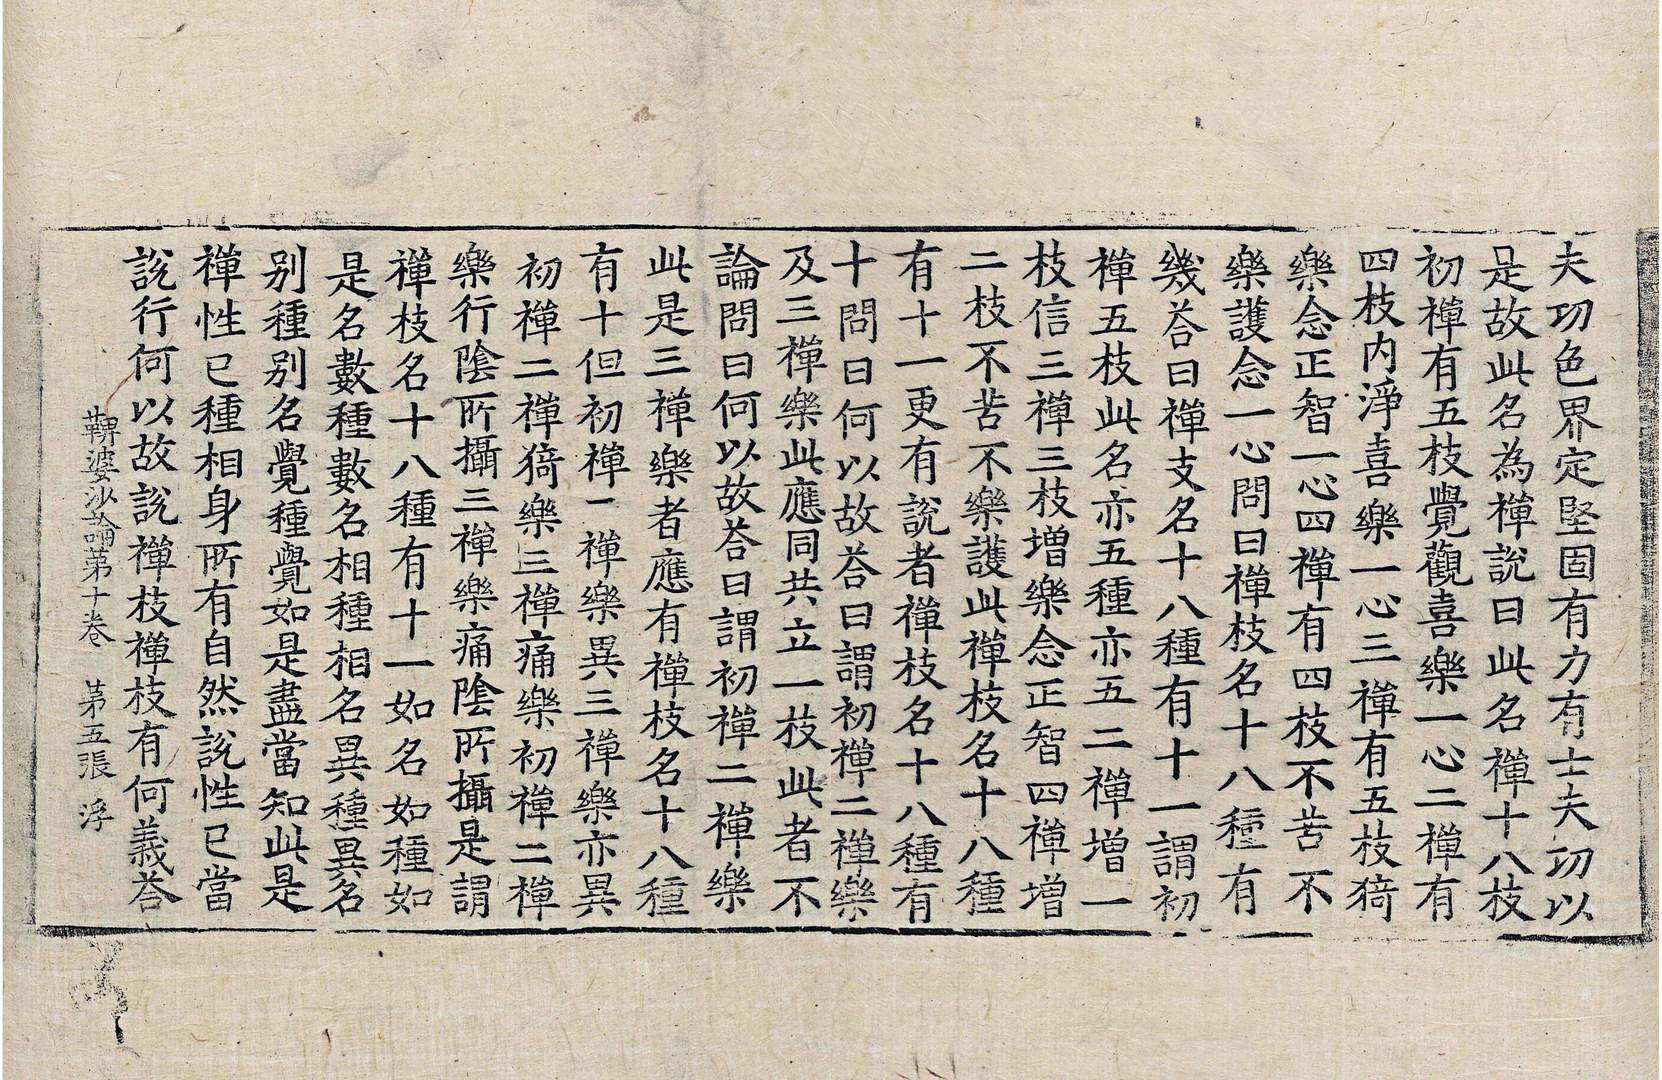 夫功色界定堅固有力有士夫功以
是故此名為禪說曰此名禪十八枝
初禪有五枝覺觀喜樂一心二禪有
四枝內淨喜樂一心三禪有五枝猗
樂念正智一心四禪有四枝不苦不
樂護念一心問曰禪枝名十八種有
幾荅曰禪支名十八種有十一謂初
禪五枝此名亦五種亦五二禪增一
枝信三禪三枝增樂念正智四禪增
二枝不苦不樂護此禪枝名十八種
有十一更有說者禪枝名十八種有
十問曰何以故荅曰謂初禪二禪樂
及三禪樂此應同共立一枝此者不
論問曰何以故荅曰謂初禪二禪樂
此是三禪樂者應有禪枝名十八種
有十但初禪二禪樂異三禪樂亦異
初禪二禪猗樂三禪痛樂初禪二禪
樂行陰所攝三禪樂痛陰所攝是謂
禪枝名十八種有十一如名如種如
是名數種數名相種相名異種異名
別種別名覺種覺如是盡當知此是
禪性已種相身所有自然說性已當
說行何以故說禪枝禪枝有何義荅
鞞婆沙論第十卷　第五張　浮